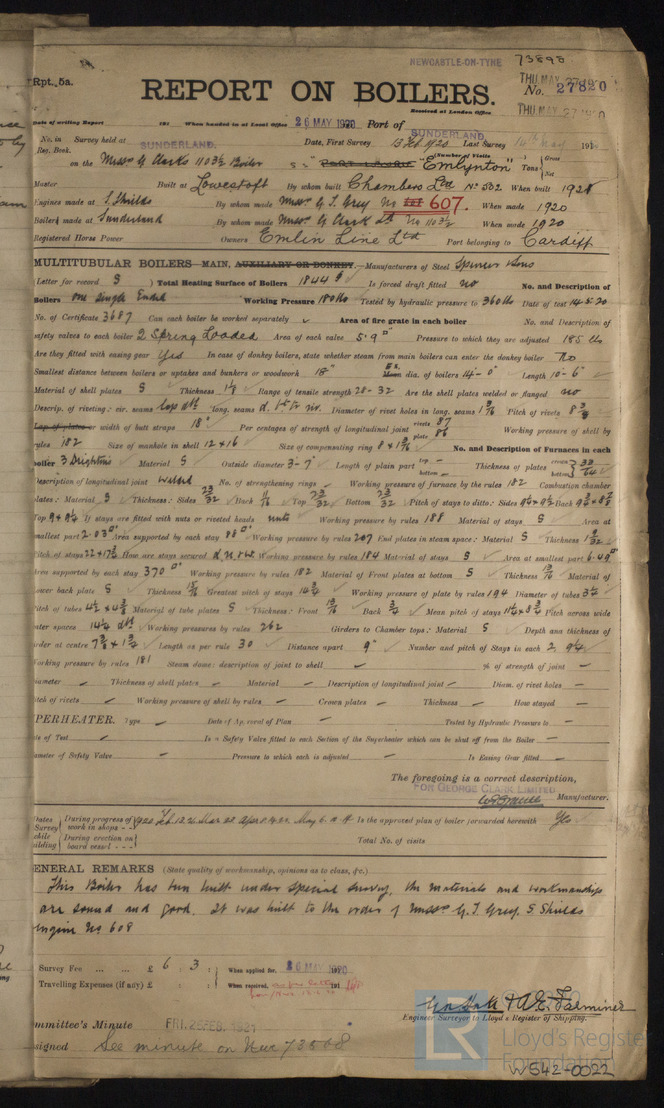 NEWCASTLE-ON-TYNE 73898
Rpt. 5a.
REPORT ON BOILERS.
No. 27820
THU. MAY 27 1920
Received at London Office
THU. MAY 27 1920
Date of writing Report 191 When handed in at Local Office 26 MAY 1920 Port of SUNDERLAND.
No. in Survey held at SUNDERLAND. Date, First Survey 13 Feb 1920 Last Survey 14th May 191
Reg. Book. (Number of Visits Gross
on the Messrs G Clarks 1103½ Boiler S.S. "Emlynton" Tons Net
Master Built at Lowestoft By whom built Chambers Ltd No 502. When built 1921
Engines made at S. Shields By whom made Messrs G. T. Grey No 607. When made 1920
Boilers made at Sunderland By whom made Messrs G Clark Ltd No 1103½ When made 1920
Registered Horse Power Owners Emlin Line Ltd Port belonging to Cardiff
MULTITUBULAR BOILERS – MAIN, AUXILIARY OR DONKEY.—Manufacturers of Steel Spencer & Sons
(Letter for record S ) Total Heating Surface of Boilers 1844 Is forced draft fitted no No. and Description of
Boilers one Single Ended Working Pressure 180 lbs Tested by hydraulic pressure to 360 lbs Date of test 14.5.20
No. of Certificate 3687 Can each boiler be worked separately Area of fire grate in each boiler No. and Description of
safety valves to each boiler 2 Spring Loaded Area of each valve 5.9 Pressure to which they are adjusted 185 lbs
Are they fitted with easing gear Yes In case of donkey boilers, state whether steam from main boilers can enter the donkey boiler no
Smallest distance between boilers or uptakes and bunkers or woodwork 18" dia. of boilers 14'-0" Length 10'-6"
Material of shell plates S Thickness 1⅛ Range of tensile strength 28-32 Are the shell plates welded or flanged no
Descrip. of riveting: cir. seams lap dbl long. seams Diameter of rivet holes in long. seams 1 3/16 Pitch of rivets
Lap of plates or width of butt straps 18" Per centages of strength of longitudinal joint rivets 87 plate 86 Working pressure of shell by
rules 182 Size of manhole in shell 12 x 16 Size of compensating ring No. and Description of Furnaces in each
boiler 3 Deightons Material S Outside diameter 3'-7" Length of plain part top – bottom – Thickness of plates crown bottom
Description of longitudinal joint weld No. of strengthening rings – Working pressure of furnace by the rules 182 Combustion chamber
plates: Material S Thickness: Sides 23/32 Back 11/16 Top 23/32 Bottom 23/32 Pitch of stays to ditto: Sides 9¼ x 9½ Back
Top 9 x 9¼ If stays are fitted with nuts or riveted heads nuts Working pressure by rules 188 Material of stays S Area at
smallest part 2.03 Area supported by each stay 88 Working pressure by rules 207 End plates in steam space: Material S Thickness
Pitch of stays How are stays secured d.n.&w. Working pressure by rules 184 Material of stays S Area at smallest part 6.49
Area supported by each stay 370 Working pressure by rules 182 Material of Front plates at bottom S Thickness 13/16 Material of
Lower back plate S Thickness 15/16 Greatest pitch of stays 14¾ Working pressure of plate by rules 194 Diameter of tubes 3¼
Pitch of tubes 4½ x 4¾ Material of tube plates S Thickness: Front 13/16 Back ¾ Mean pitch of stays Pitch across wide
water spaces 14¼ Working pressures by rules 262 Girders to Chamber tops: Material S Depth and thickness of
girder at centre 7¾ x 1¾ Length as per rule 30 Distance apart 9" Number and pitch of Stays in each 2 9¼
Working pressure by rules 181 Steam dome: description of joint to shell – % of strength of joint –
Diameter – Thickness of shell plates – Material – Description of longitudinal joint – Diam. of rivet holes –
Pitch of rivets – Working pressure of shell by rules – Crown plates – Thickness – How stayed –
SUPERHEATER. Type – Date of Approval of Plan – Tested by Hydraulic Pressure to –
Date of Test – Is a Safety Valve fitted to each Section of the Superheater which can be shut off from the Boiler –
Diameter of Safety Valve – Pressure to which each is adjusted – Is Easing Gear fitted –
The foregoing is a correct description,
FOR GEORGE CLARK LIMITED
Manufacturer.
Dates of Survey while building During progress of work in shops - - 1920 Feb 12 Is the approved plan of boiler forwarded herewith Yes
During erection on board vessel - - - Total No. of visits
GENERAL REMARKS (State quality of workmanship, opinions as to class, &c.)
This Boiler has been built under special survey, the materials and workmanship
are sound and good. It was built to the order of Messrs G. T. Grey S Shields
engine No 608
Survey Fee ... ... £ 6 : 3 : When applied for, 26 MAY 1920
Travelling Expenses (if any) £ : : When received, 191
Engineer Surveyor to Lloyd's Register of Shipping.
Committee's Minute FRI. 25 FEB. 1921
Assigned See minute on Nwc 73568
LR
© 2020
Lloyd's Register
Foundation
W542-0022